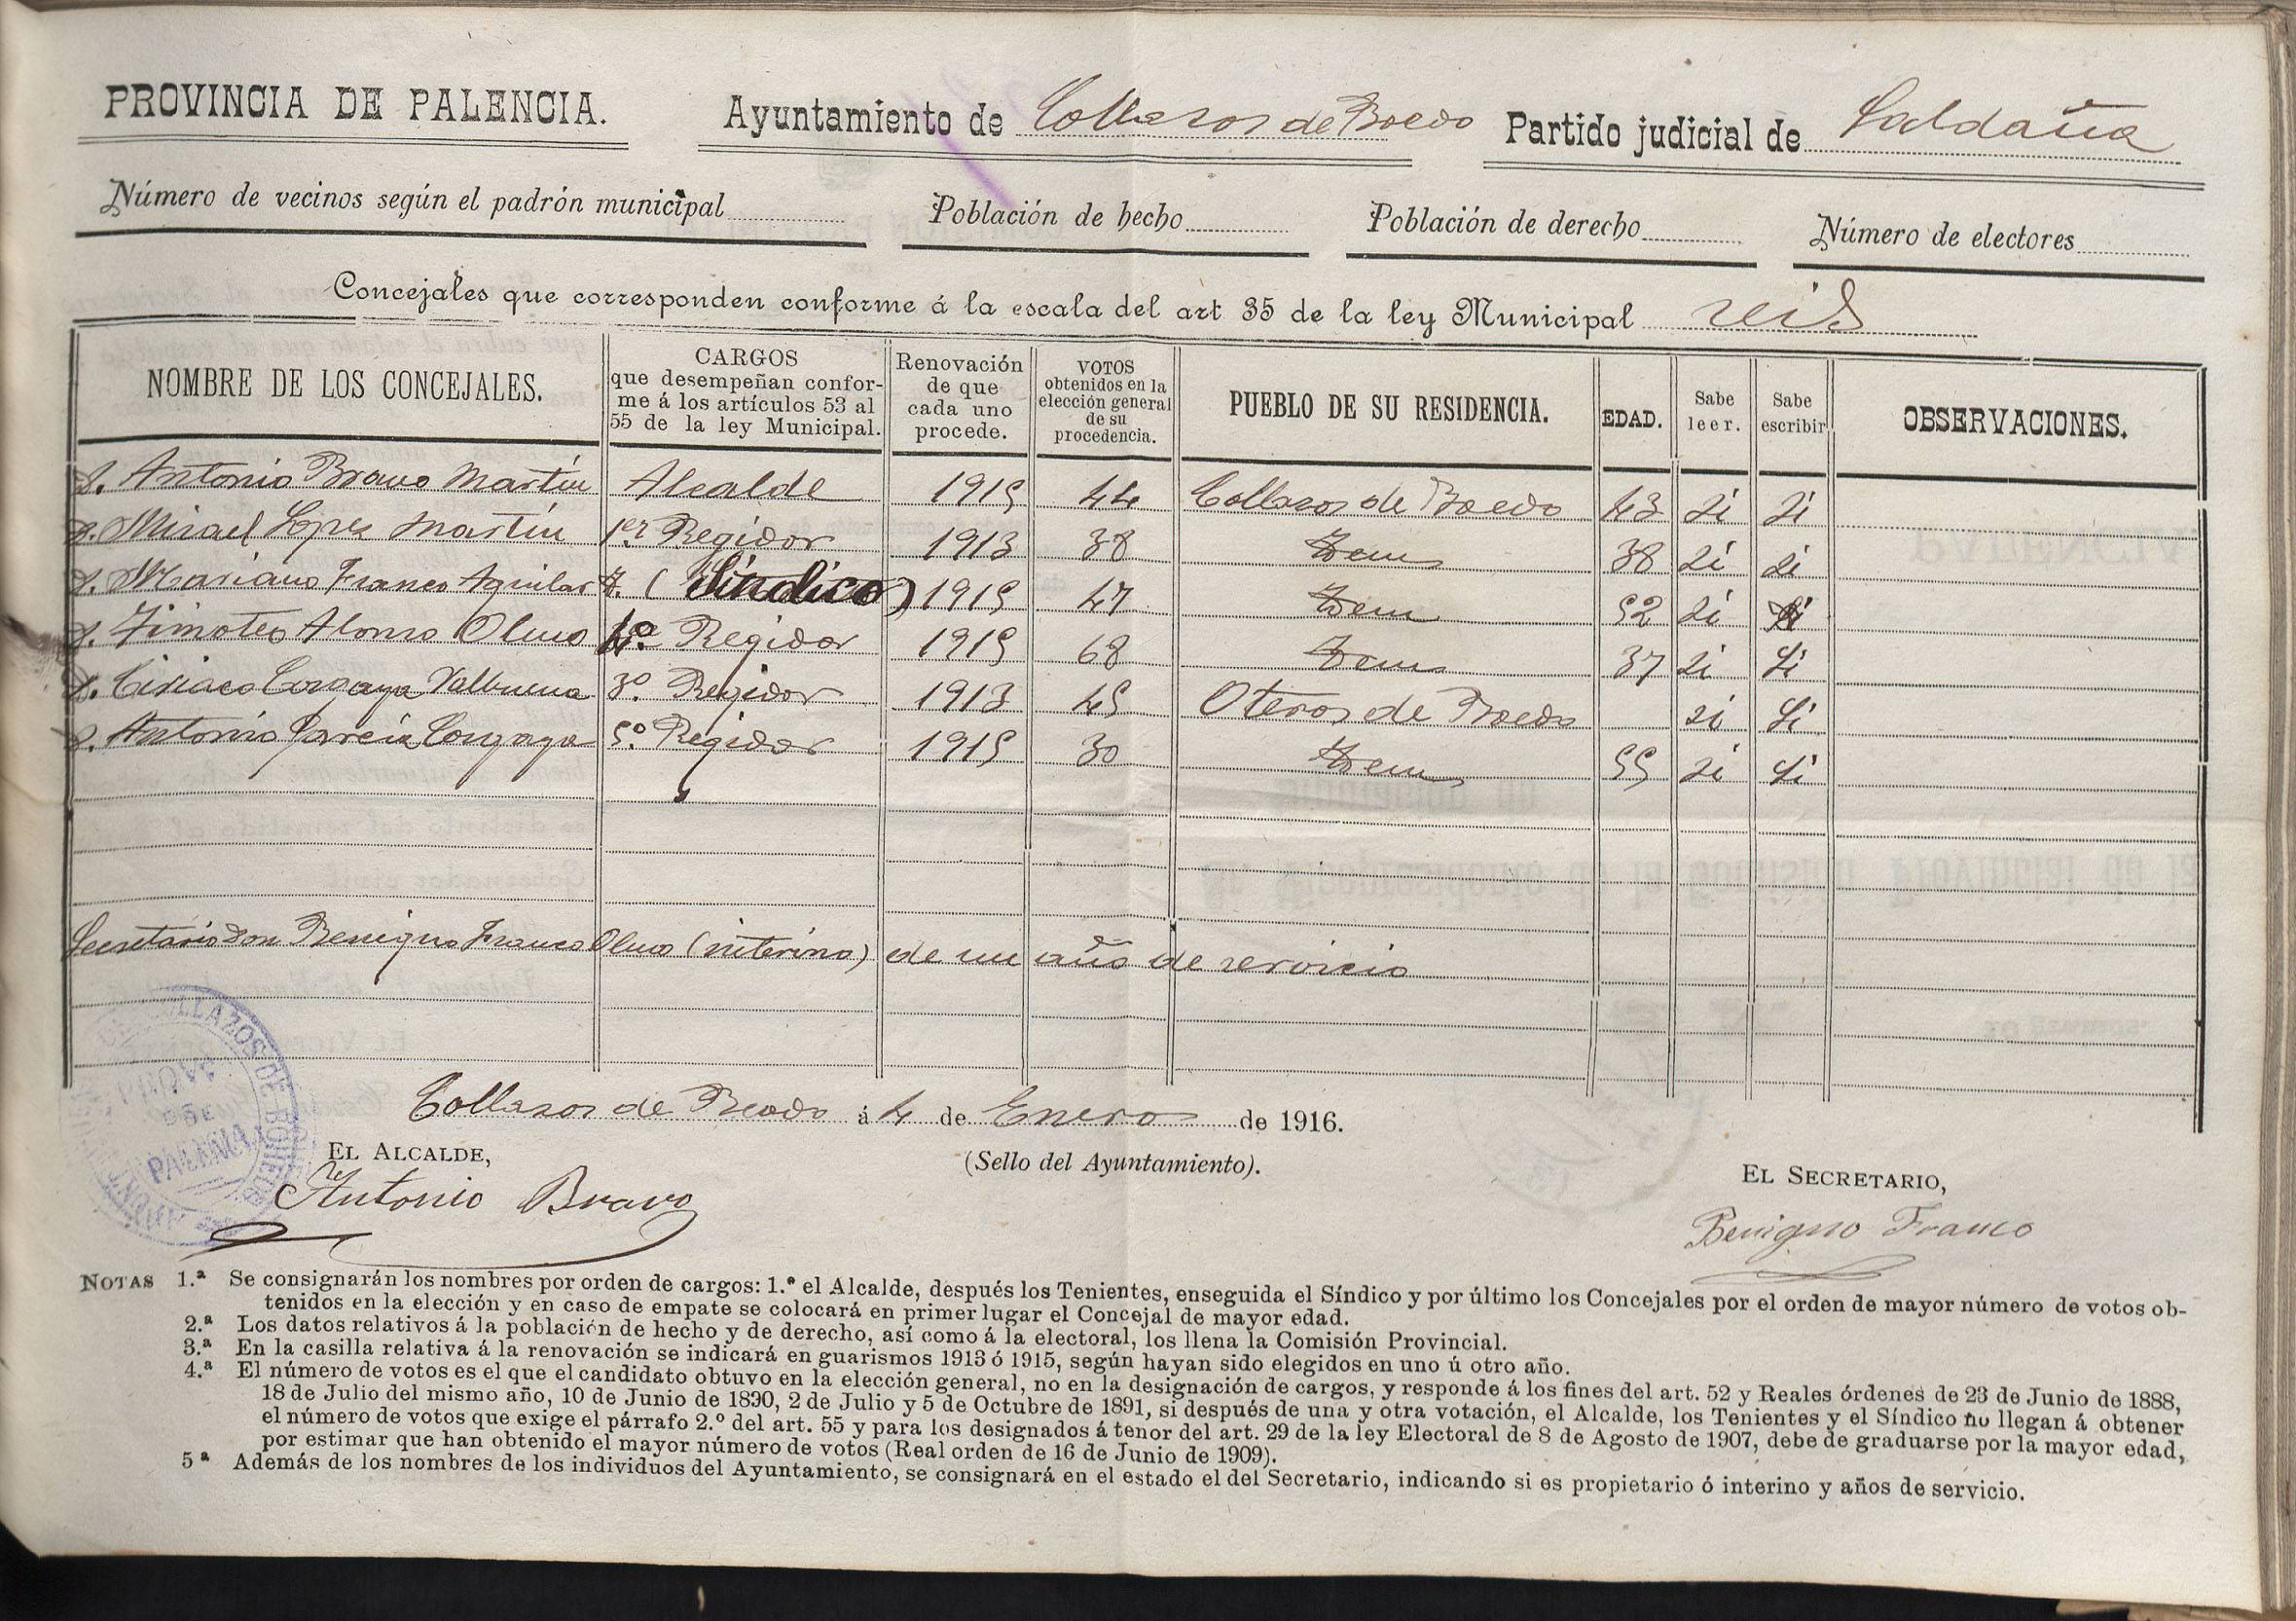 PROVINCIA DE PALENCIA. Ayuntamiento de Collazos de Boedo Partido judicial de Saldaña
Número de vecinos según el padrón municipal Población de hecho Población de derecho Número de electores
Concejales que corresponden conforme á la escala del art 35 de la ley Municipal seis
NOMBRE DE LOS CONCEJALES. CARGOS que desempeñan confor-me á los artículos 53 al 55 de la ley Municipal. Renovación de que cada uno procede. VOTOS obtenidos en la elección general de su procedencia. PUEBLO DE SU RESIDENCIA. EDAD. Sabe leer. Sabe escribir OBSERVACIONES.
D. Antonio Bravo Martín Alcalde 1915 44 Collazos de Boedo 43 si si
D. Misael Lopez Martín 1er Regidor 1913 38 Idem 38 si si
D. Mariano Franco Aguilar (Sindico) 1915 47 Idem 52 si si
D. Timoteo Alonso Olmo 4º Regidor 1915 68 Idem 37 si Si
D. Ciriaco Gozaya Valbuena 3º Regidor 1913 45 Oteros de Boedo si Si
D. Antonio García 5º Regidor 1915 30 Idem 55 si Si
Secretario Don Benigno Franco Olmo (interino) de un año de servicio
COLLAZOS DE BOEDO
PROVª
DE
PALENCIA
Collazos de Boedo á 4 de Enero de 1916.
EL ALCALDE, (Sello del Ayuntamiento). EL SECRETARIO,
Antonio Bravo Benigno Franco
NOTAS 1.ª Se consignarán los nombres por orden de cargos: 1.º el Alcalde, después los Tenientes, enseguida el Síndico y por último los Concejales por el orden de mayor número de votos ob-
tenidos en la elección y en caso de empate se colocará en primer lugar el Concejal de mayor edad.
2.ª Los datos relativos á la población de hecho y de derecho, así como á la electoral, los llena la Comisión Provincial.
3.ª En la casilla relativa á la renovación se indicará en guarismos 1913 ó 1915, según hayan sido elegidos en uno ú otro año.
4.ª El número de votos es el que el candidato obtuvo en la elección general, no en la designación de cargos, y responde á los fines del art. 52 y Reales órdenes de 23 de Junio de 1888,
18 de Julio del mismo año, 10 de Junio de 1890, 2 de Julio y 5 de Octubre de 1891, si después de una y otra votación, el Alcalde, los Tenientes y el Síndico no llegan á obtener
el número de votos que exige el párrafo 2.º del art. 55 y para los designados á tenor del art. 29 de la ley Electoral de 8 de Agosto de 1907, debe de graduarse por la mayor edad,
por estimar que han obtenido el mayor número de votos (Real orden de 16 de Junio de 1909).
5ª Además de los nombres de los individuos del Ayuntamiento, se consignará en el estado el del Secretario, indicando si es propietario ó interino y años de servicio.